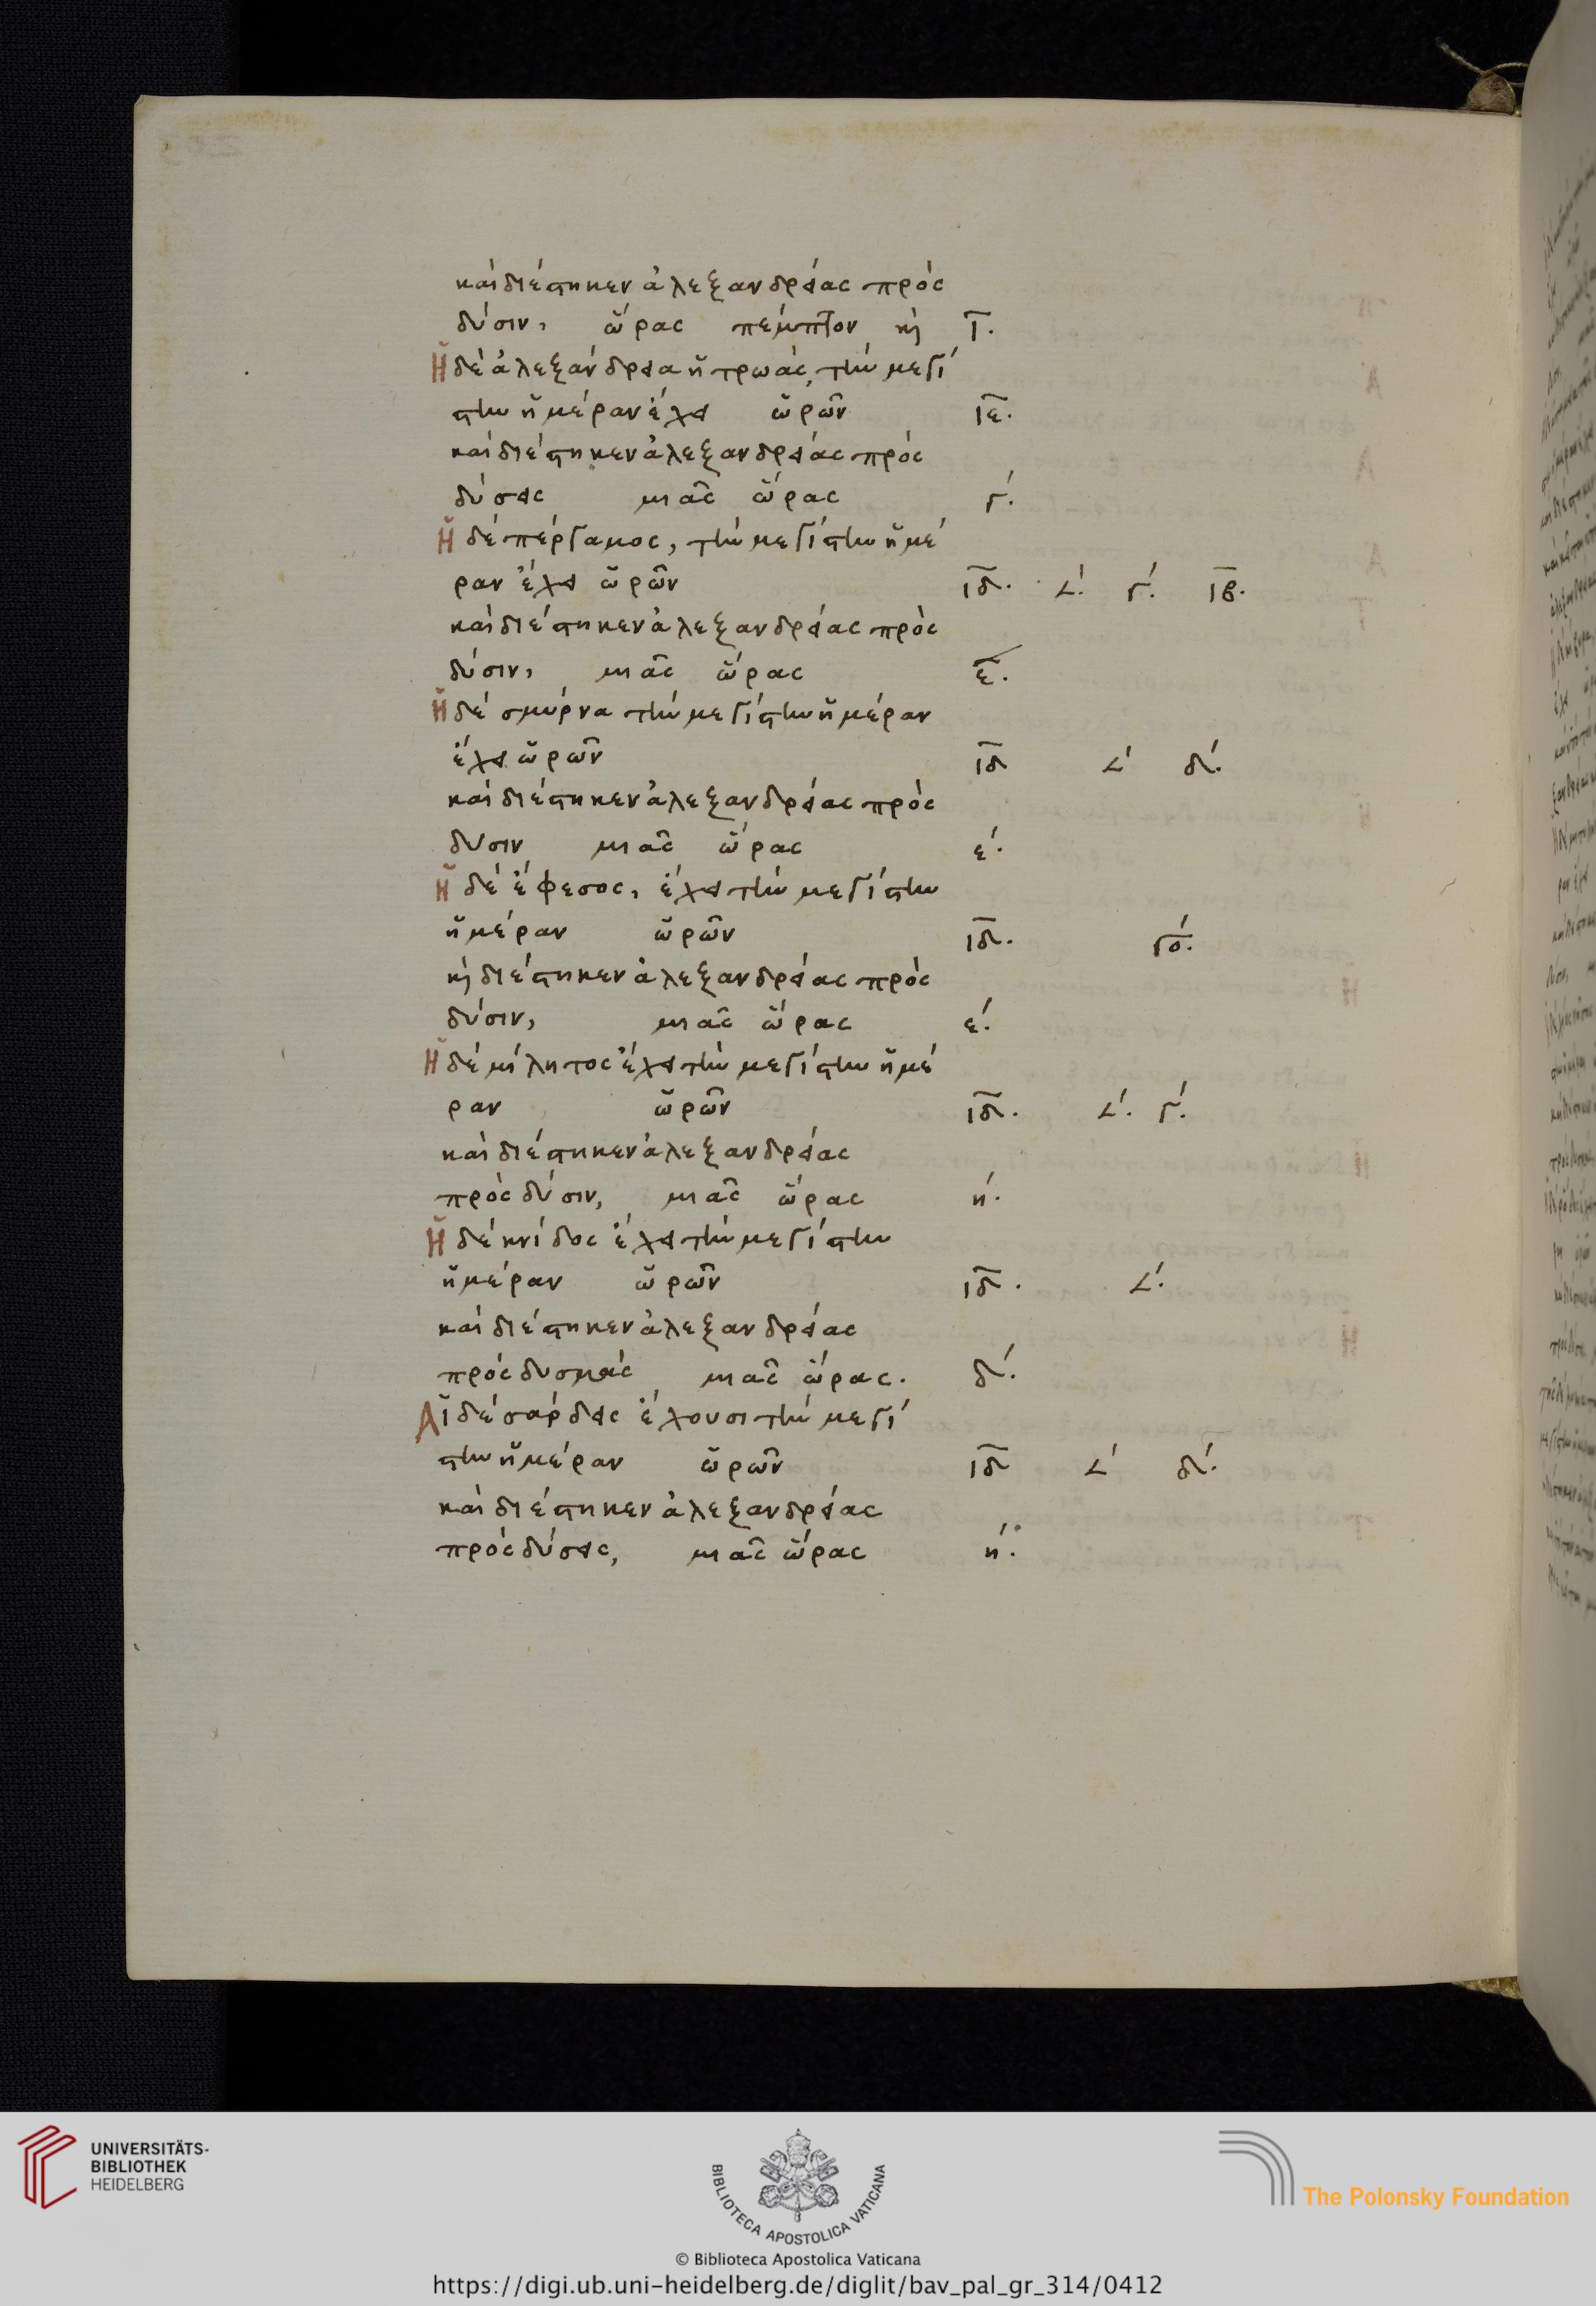 καὶ διέστηκεν ἀλεξανδρείας πρὸς
δύσιν, ὥρας πέμπτον κ Ι.
Ἡ δὲ ἀλεξάνδρεια ἡ τρωάς, τὴν μεγί
στην ἡμέραν ἔχει ὡρῶν ιε.
καὶ διέστηκεν ἀλεξανδρείας πρὸς
δύσεις μιᾶς ὥρας γ´.
Ἡ δὲ πέργαμος, τὴν μεγίστην ἡμέ
ραν ἔχει ὡρῶν ιδ. ∠´. γ´. ιβ.
καὶ διέστηκεν ἀλεξανδρείας πρὸς
δύσιν, μιᾶς ὥρας ε.
Ἡ δὲ σμύρνα τὴν μεγίστην ἡμέραν
ἔχει ὡρῶν ιδ ∠´ δ´.
καὶ διέστηκεν ἀλεξανδρείας πρὸς
δυσιν μιᾶς ὥρας ε´.
Ἡ δὲ ἔφεσος, ἔχει τὴν μεγίστην
ἡμέραν ὡρῶν ιδ. γό.
κ διέστηκεν ἀλεξανδρείας πρὸς
δύσιν, μιᾶς ὥρας ε´.
Ἡ δὲ μίλητος ἔχει τὴν μεγίστην ἡμέ
ραν ὡρῶν ιδ. ∠´. γ´.
καὶ διέστηκεν ἀλεξανδρείας
πρὸς δύσιν, μιᾶς ὥρας η´.
Ἡ δὲ κνίδος ἔχει τὴν μεγίστην
ἡμέραν ὡρῶν ιδ. ∠´.
καὶ διέστηκεν ἀλεξανδρείας
πρὸς δυσμὰς μιᾶς ὥρας. δ´.
Αἱ δὲ σάρδεις ἔχουσι τὴν μεγί
στην ἡμέραν ὡρῶν ιδ ∠´ δ´.
καὶ διέστηκεν ἀλεξανδρείας
πρὸς δύσεις, μιᾶς ὥρας η´.
UNIVERSITÄTS-
BIBLIOTHEK
HEIDELBERG
BIBLIOTECA APOSTOLICA VATICANA
The Polonsky Foundation
© Biblioteca Apostolica Vaticana
https://digi.ub.uni-heidelberg.de/diglit/bav_pal_gr_314/0412